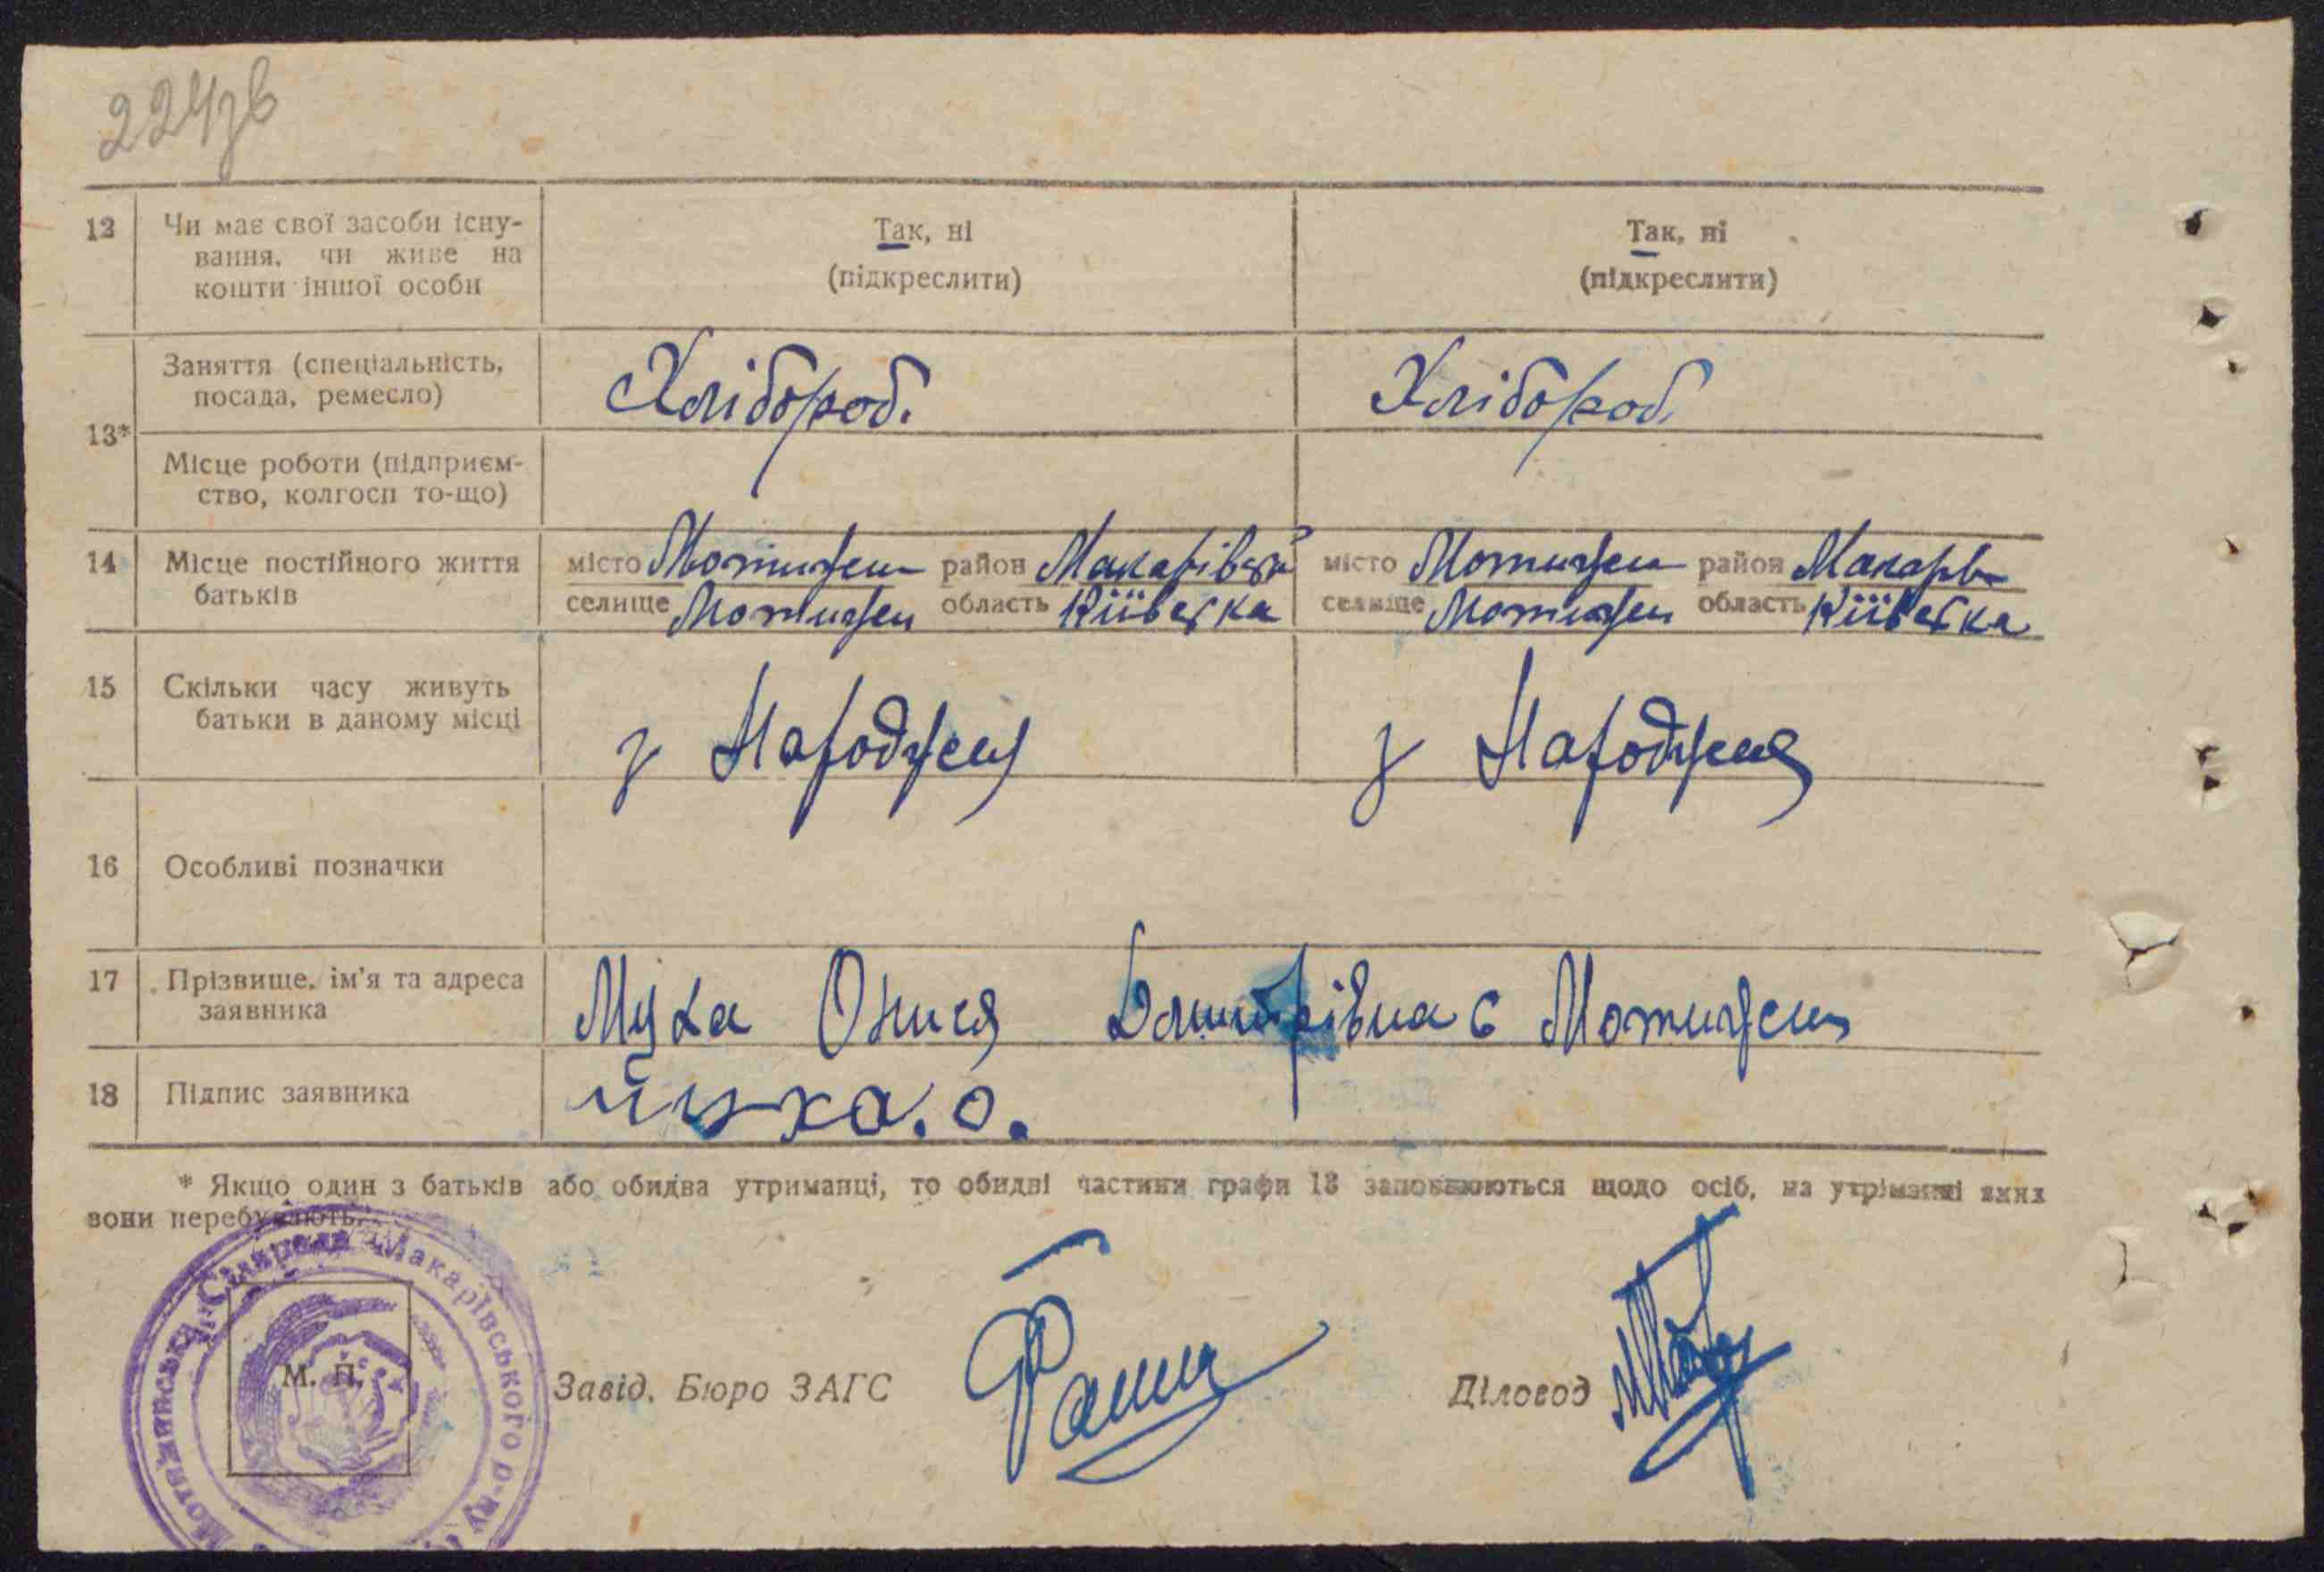 224зв
12 Чи має свої засоби існу-
вання, чи живе на
кошти іншої особи
Так, ні
(підкреслити)
Так, ні
(підкреслити)
13* Заняття (спеціальність,
посада, ремесло)
Хлібороб.
Хлібороб
Місце роботи (підприєм-
ство, колгосп то-що)
14 Місце постійного життя
батьків
місто Мотижен район Макарівськ
селище Мотижен область Київська
місто Мотижен район Макарів
селище Мотижен область Київська
15 Скільки часу живуть
батьки в даному місці
з Народжен
з Народженя
16 Особливі позначки
17 Прізвище, ім'я та адреса
заявника
Муха Онися Дмитрівна с Мотижен
18 Підпис заявника
Муха. о.
* Якщо один з батьків або обидва утриманці, то обидві частини графи 13 заповнюються щодо осіб, на утриманні яких
вони перебувають.
Мотижинська Сільрада Макарівського р-ну
М. П.
Завід. Бюро ЗАГС
Діловод